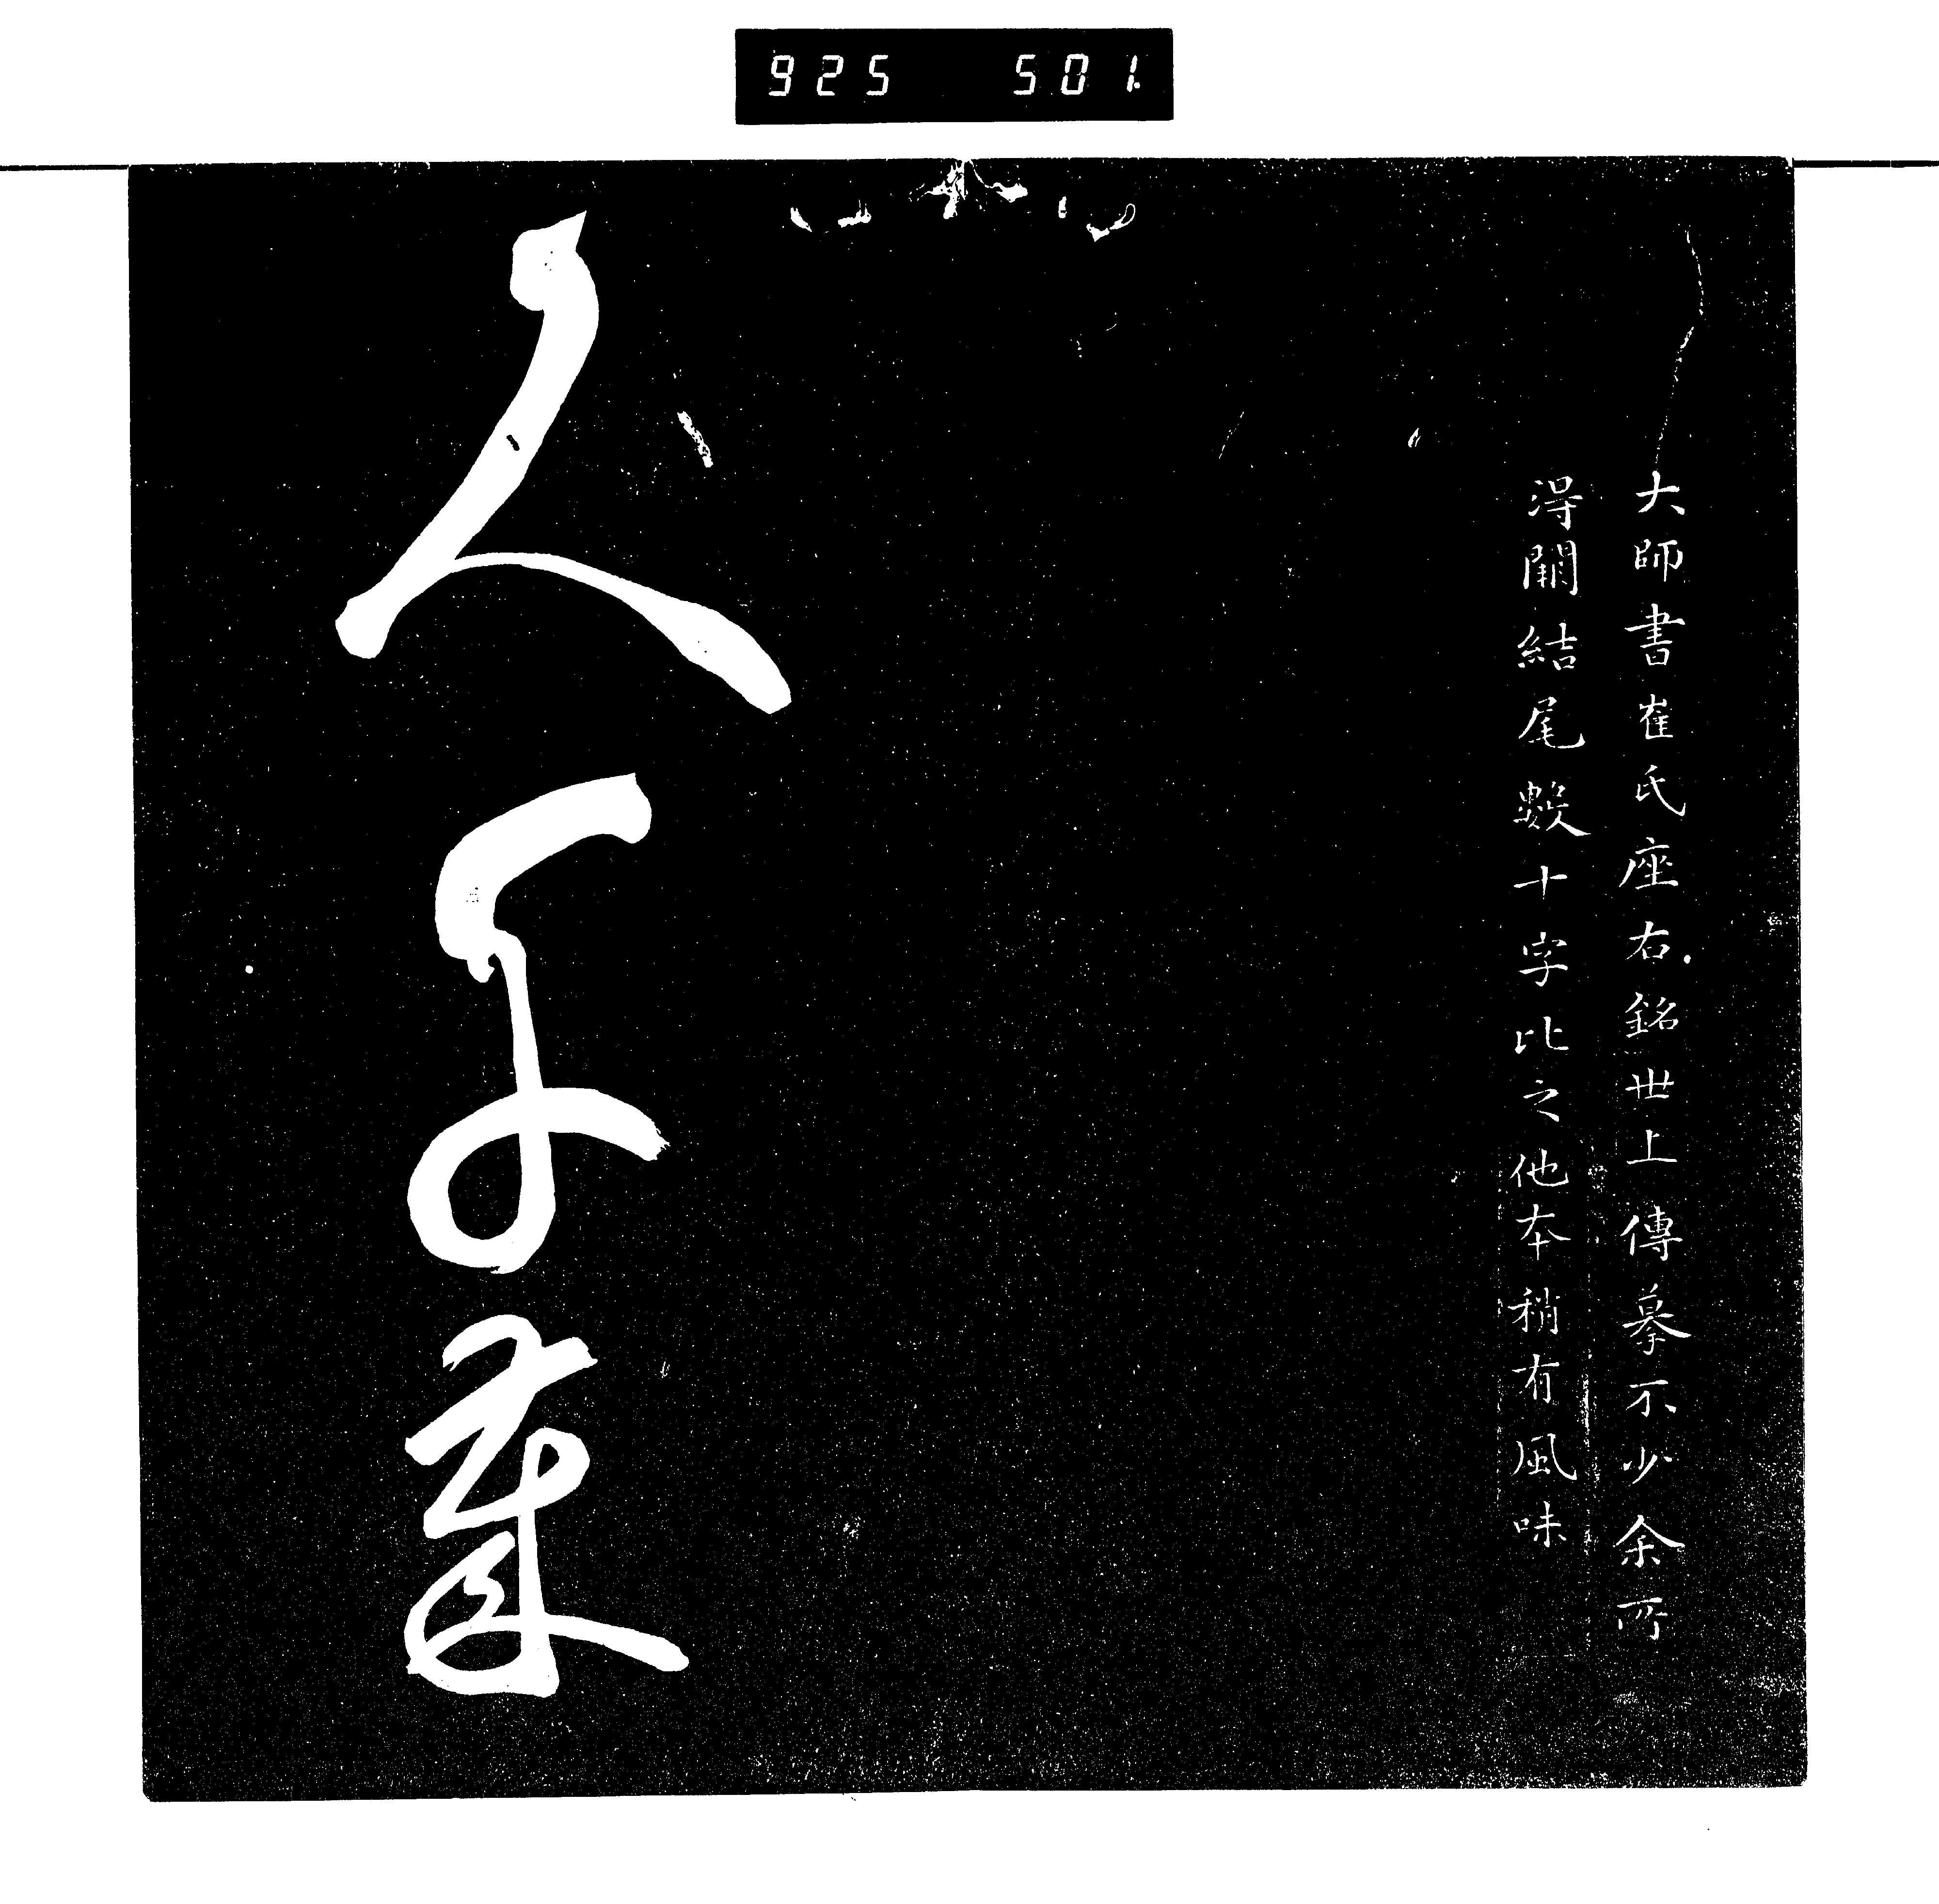 925 501.
大師書崔氏座右銘世上傳摹不少余所
得闕結尾數十字比之他本稍有風味
人